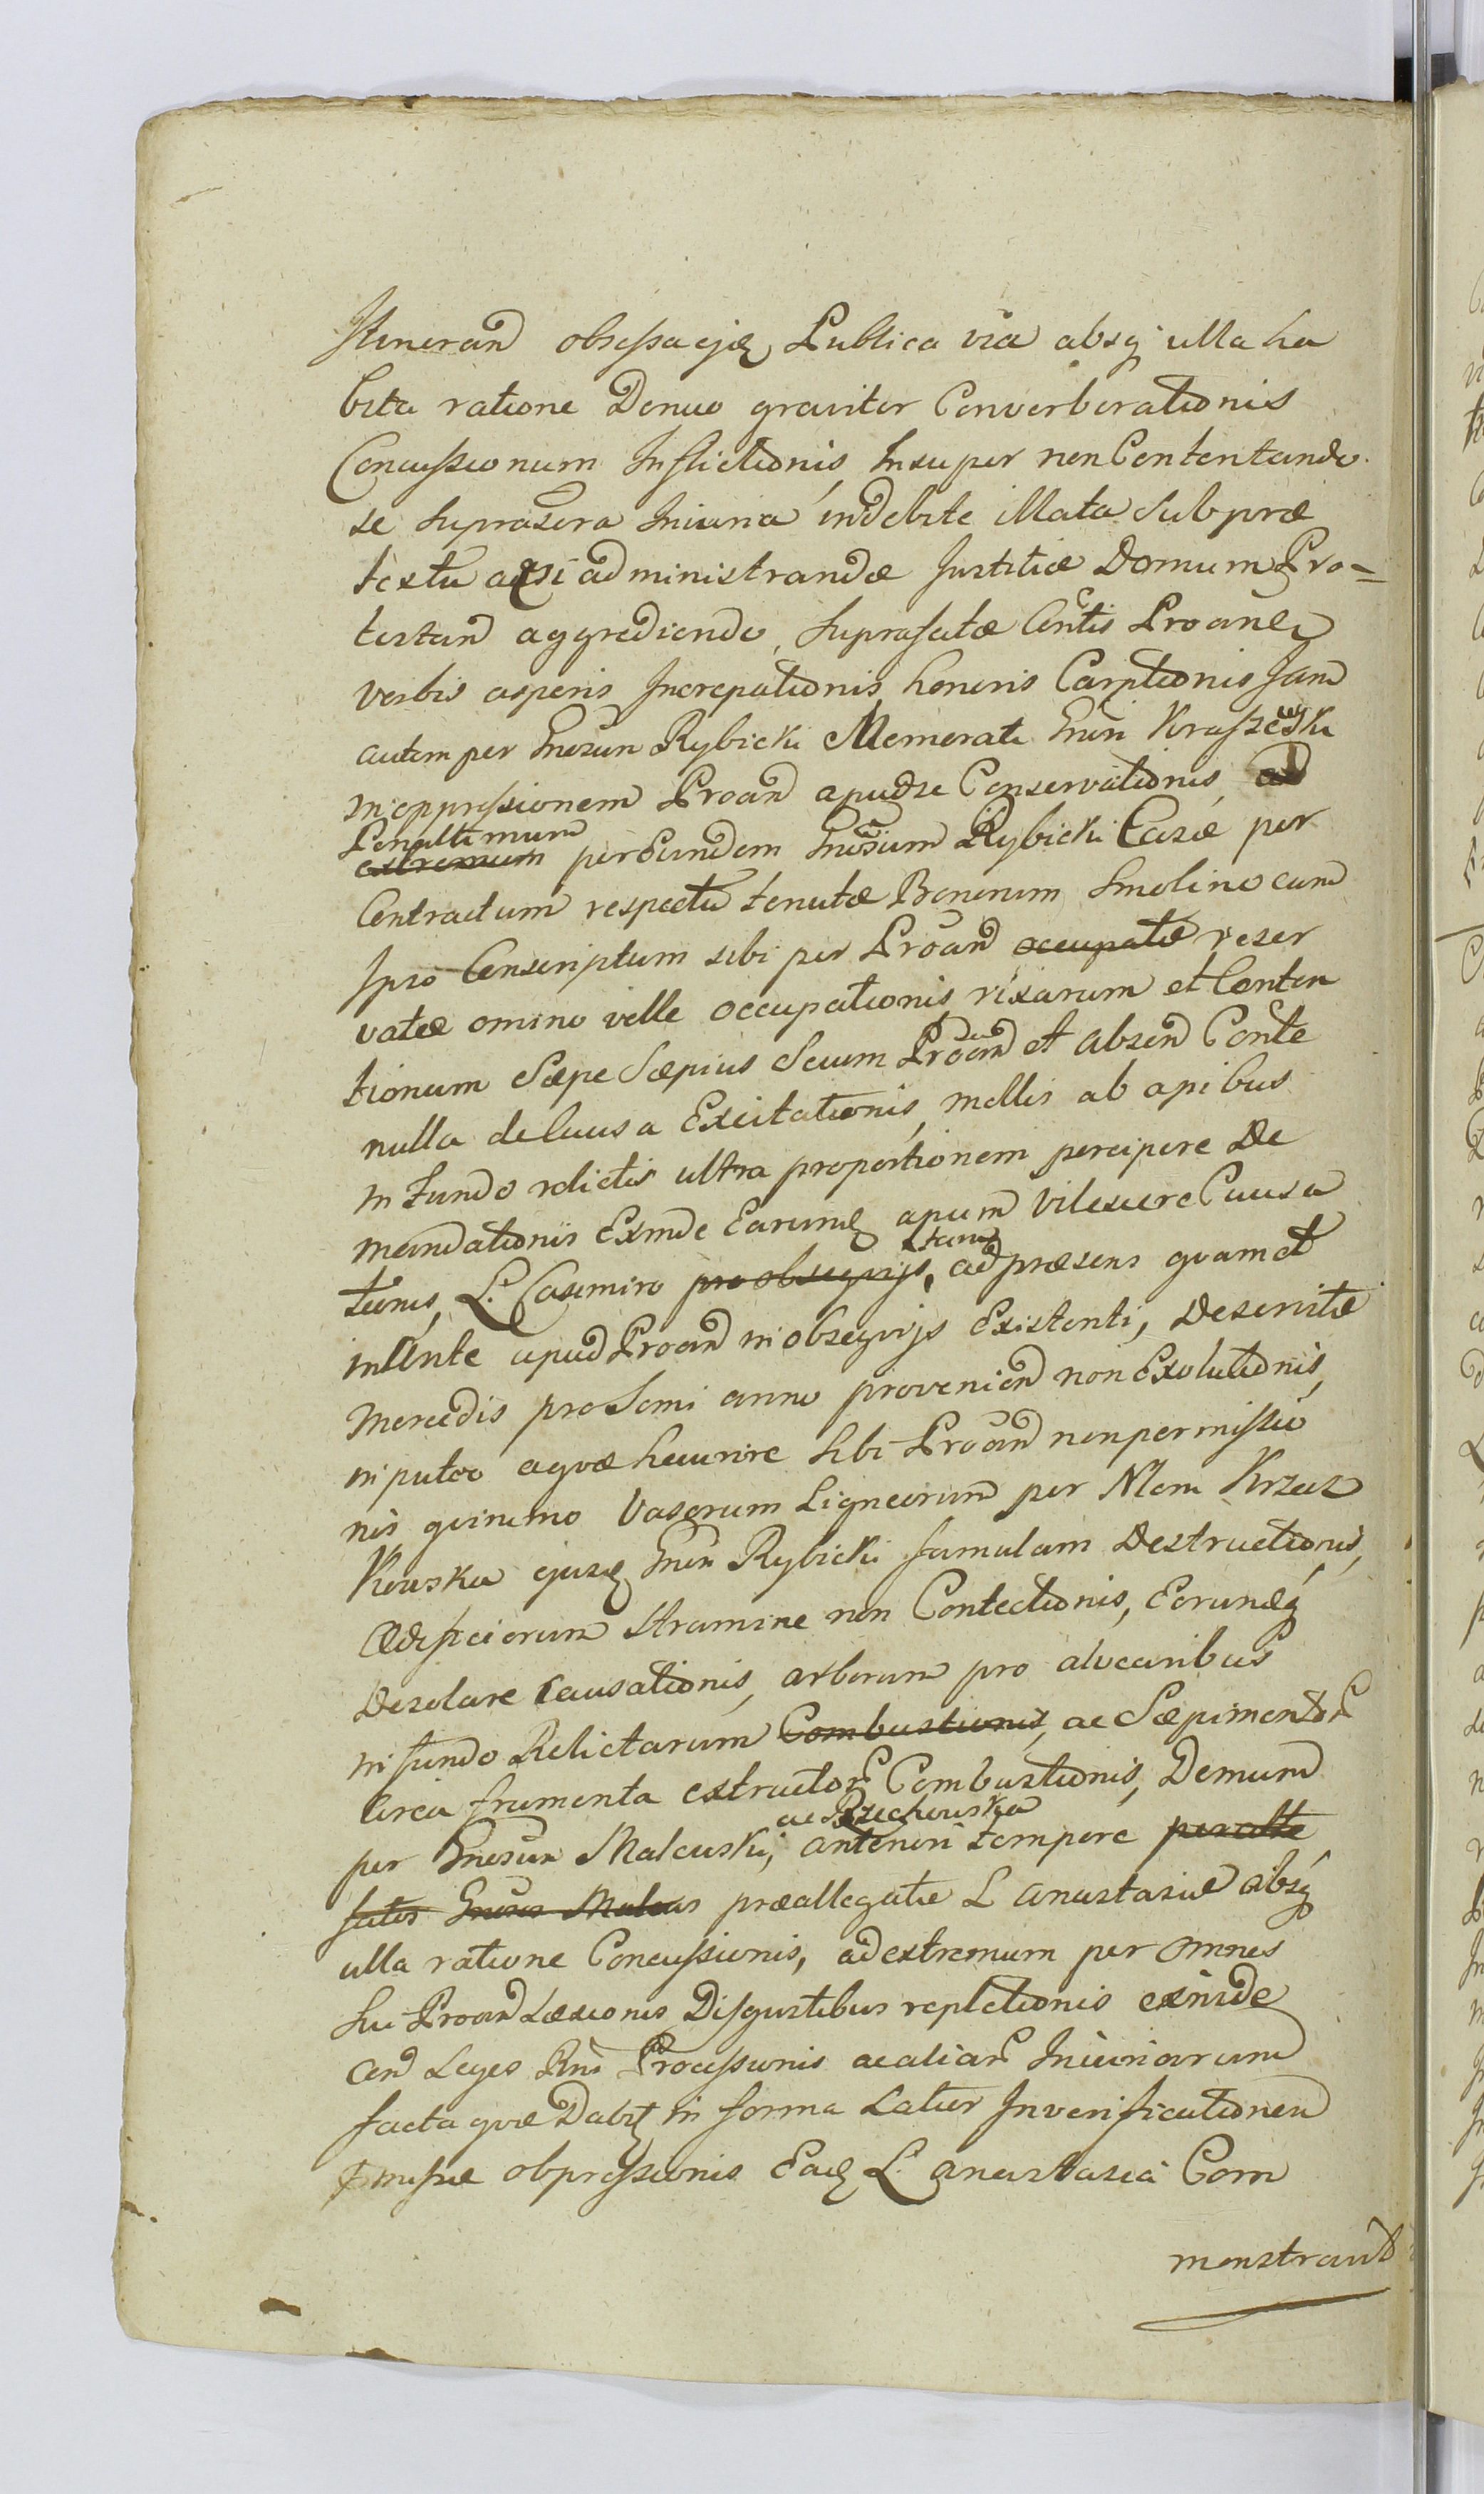 Itineran obsessa ejq Publica via absq ulla ha
bita ratione Denuo graviter Converberationis
Concussionum Inflictionis, Insuper non Contentando
se suprasera Iniuria indebite illata Sub præ
textu acsi administrandæ Justitiæ Domum Pro-
testan aggrediendo, suprafatæ Cntis Proanq
verbis asperis Increpationis honoris Carptionis Jam
autem per Gnosum Rybicki Memorati Gnsi Kraszewski
in oppressionem Proan apud se Conservationis, ad
Penultimum
extremum per Eundem Gnosum Rybicki Casæ per
Contractum respectu tenutæ Bonorum Smolino cum
Ipso Conscriptum sibi per Proan occupatæ reser
vatæ omino velle occupationis, rixarum et Conten
tionum Sæpe Sæpius Secum Proan et absen Conte
nulla de Causa Excitationis, mellis ab apibus
in Fundo relictis ultra proportionem percipere De
mandationis Exinde Earumq apum Vilescere Causa
tionis, L. Casimiro pro obsequijs, tam ad præsens quam et
in Ante apud Proan in obsequijs Existenti, Deservitæ
Mercedis pro Semi anno provenien non Exolutionis,
in puteo aquæ haurire sibi Proan non permissio
nis quinimo Vasorum Ligneorum per Nlem Krzaz
Kowska ejusq Gnsi Rybicki famulam Destructionis,
Ædificiorum Stramine non Contectionis, Eorundq
Desolare Causationis, arborum pro alvearibus
in fundo Relictarum Combustionis, ac Sæpimentor
Circa frumenta extructor Combustionis, Demum
per Gnosum Malewski, ac Rzechowska anteriori tempore peralte
fatos Gnosos Malews præallegatæ L Anastasiæ absq
ulla ratione Concussionis, ad extremum per omnes
Sui Proan Læsionis Disgustibus repletionis exinde
Cen Leges Rni Processionis ac aliar Iniuriarum
facta quæ Dabit in forma Latius In verificationem
pmissæ obpressionis Eadq L. Anastasia Com
monstravit